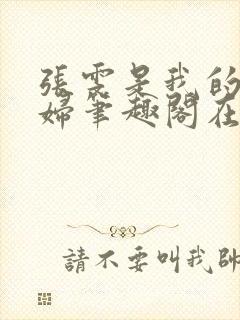 張雲是我的
婦筆趣閣在
請不要叫我帥